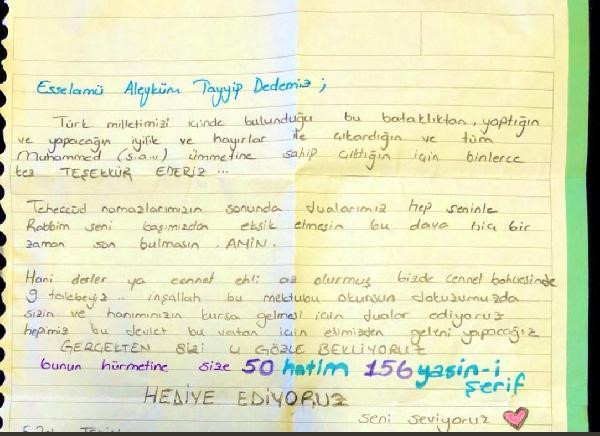 Esselamü Aleyküm Tayyip Dedemiz;
Türk milletimizi içinde bulunduğu bu bataklıktan, yaptığın
ve yapacağın iyilik ve hayırlar ile çıkardığın ve tüm
Muhammed (s.a...) ümmetine sahip çıktığın için binlerce
kez TEŞEKKÜR EDERİZ ...
Teheccüd namazlarımızın sonunda dualarımız hep seninle
Rabbim seni başımızdan eksik etmesin bu dava hiç bir
zaman son bulmasın. AMİN.
Hani derler ya cennet ehli az olurmuş bizde cennet bahçesinde
9 talebeyiz.. inşallah bu mektubu okursun dokuzumuzda
sizin ve hanımınızın kursa gelmesi için dualar ediyoruz
hepimiz bu devlet bu vatan için elimizden geleni yapacağız
GERÇEKTEN SİZİ 4 GÖZLE BEKLİYORUZ
bunun hürmetine size 50 hatim 156 yasin-i
şerif
HEDİYE EDİYORUZ
seni seviyoruz